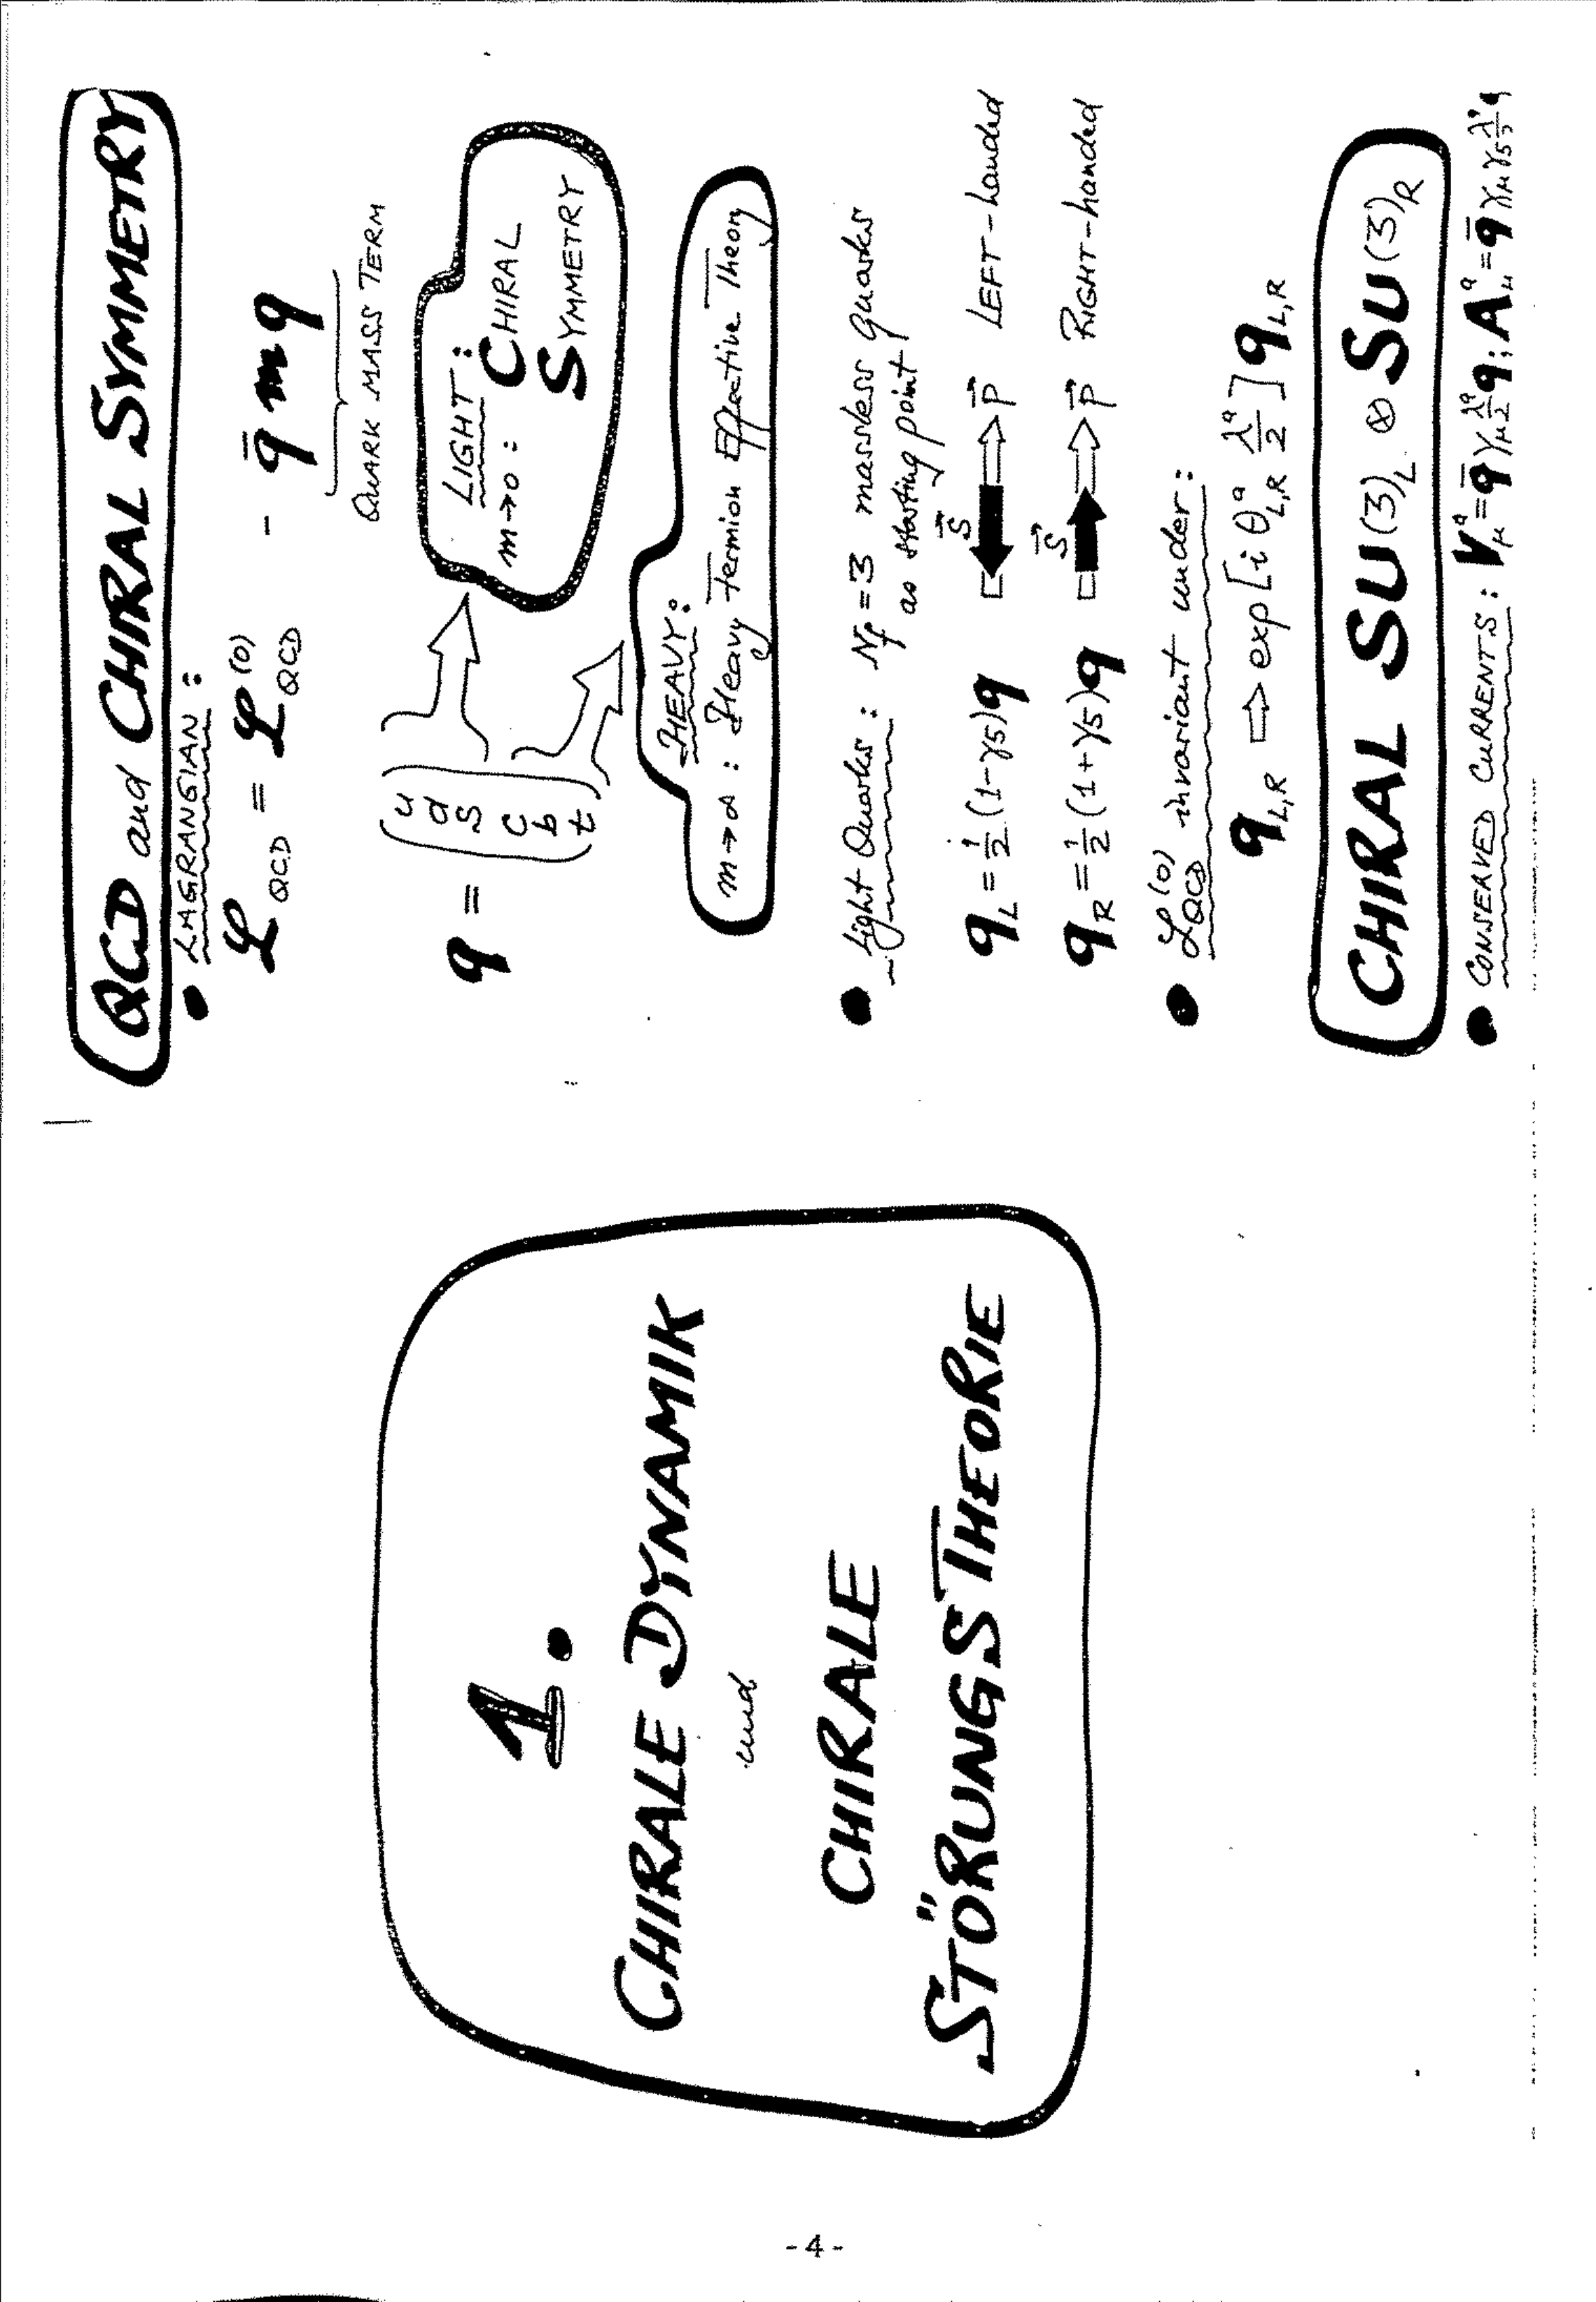 1.
CHIRALE DYNAMIK
und
CHIRALE
STÖRUNGSTHEORIE
QCD and CHIRAL SYMMETRY
• LAGRANGIAN :
ℒ_QCD = ℒ_QCD^(0) - q̄ m q
QUARK MASS TERM
q = (u d s c b t)
LIGHT :
m→0 : CHIRAL
SYMMETRY
HEAVY :
m→∞ : Heavy Fermion Effective Theory
• Light Quarks : N_f = 3 massless quarks
as starting point
q_L = 1/2 (1-γ5) q S⃗ ⇒ p⃗ LEFT-handed
q_R = 1/2 (1+γ5) q S⃗ ⇒ p⃗ RIGHT-handed
• ℒ_QCD^(0) invariant under :
q_L,R ⇒ exp[i θ^a_L,R λ^a/2] q_L,R
CHIRAL SU(3)_L ⊗ SU(3)_R
• CONSERVED CURRENTS : V^a_μ = q̄ γ_μ λ^a/2 q ; A^a_μ = q̄ γ_μ γ_5 λ^a/2 q
- 4 -